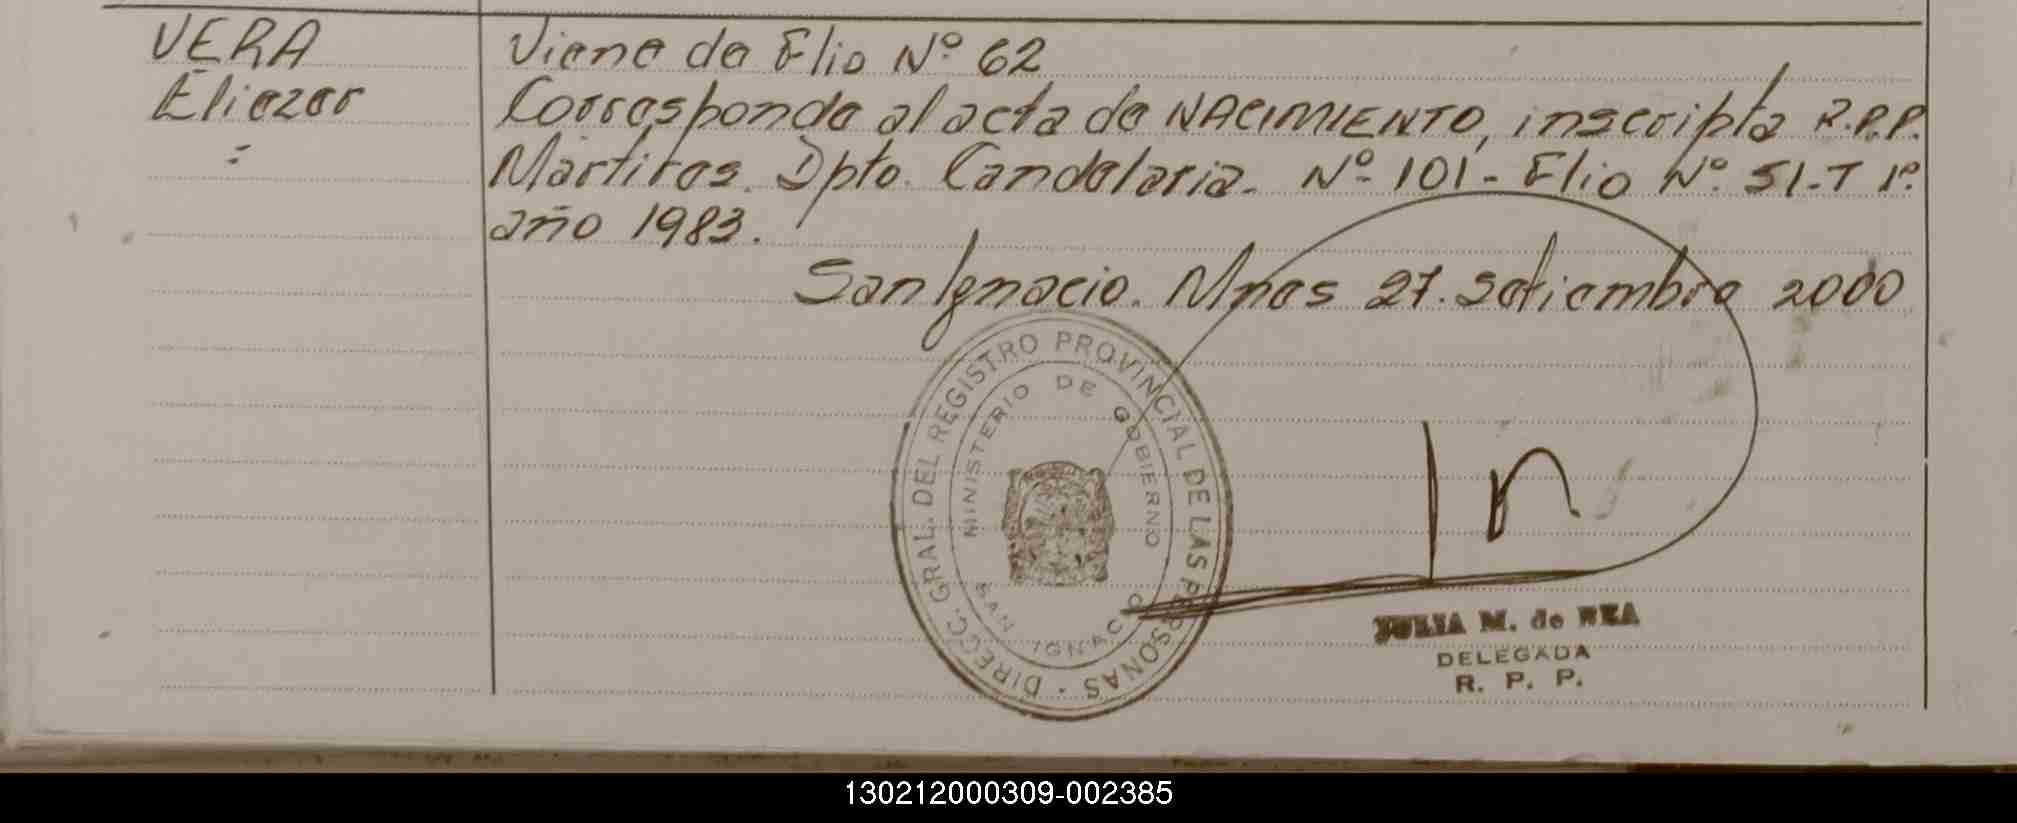 VERA Viene de Flio Nº 62
Eliezer Corresponde al acta de NACIMIENTO, inscripta R.P.P.
Mártires. Dpto. Candelaria. Nº 101 - Flio Nº 51-T 1º.
año 1983.
San Ignacio. Mnes 27. Setiembre 2000
DIRECC. GRAL. DEL REGISTRO PROVINCIAL DE LAS PERSONAS
MINISTERIO DE GOBIERNO
SAN IGNACIO
JULIA M. de REA
DELEGADA
R. P. P.
130212000309-002385